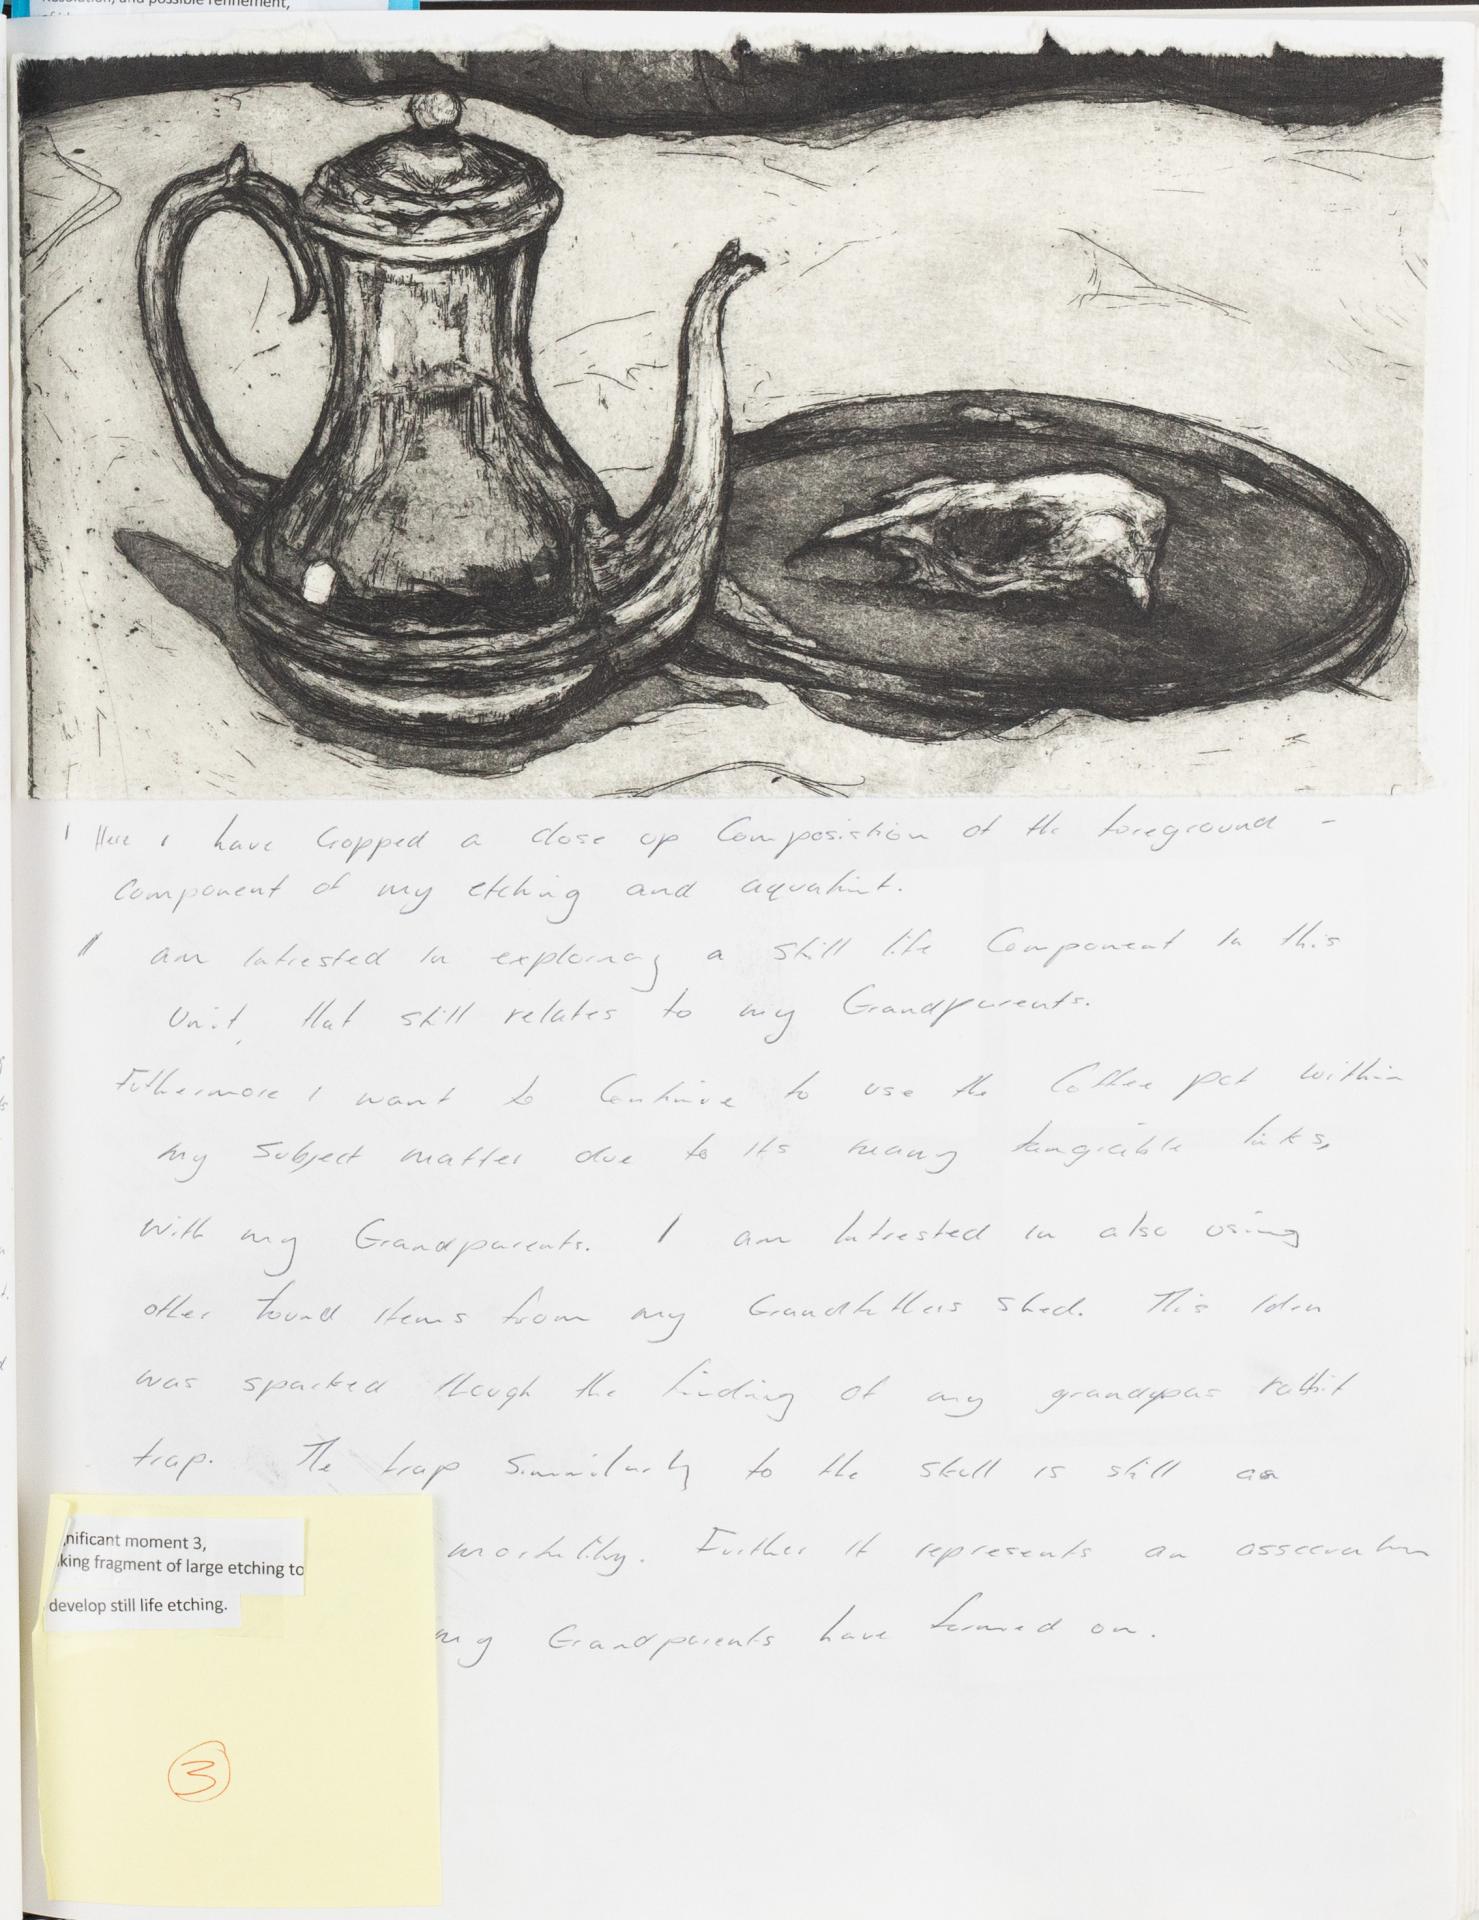 Resolution, and possible refinement,
Here I have Cropped a close up Composistion of the foreground -
Component of my etching and aquatint.
I am Intrested In explornag a still life Component In this
Unit, that still relates to my Grandparents.
Futhermore I want to Continue to use the Coffee pot within
my Subject matter due to its many tangiable links,
with my Grandparents. I am Intrested in also using
other found items from my Grandfathers shed. This Idea
was sparked though the finding of my grandpas rabbit
trap. The trap Simmilarly to the skull is still as
mortality. Further it represents an
my Grandparents have formed on.
nificant moment 3,
king fragment of large etching to
develop still life etching.
3